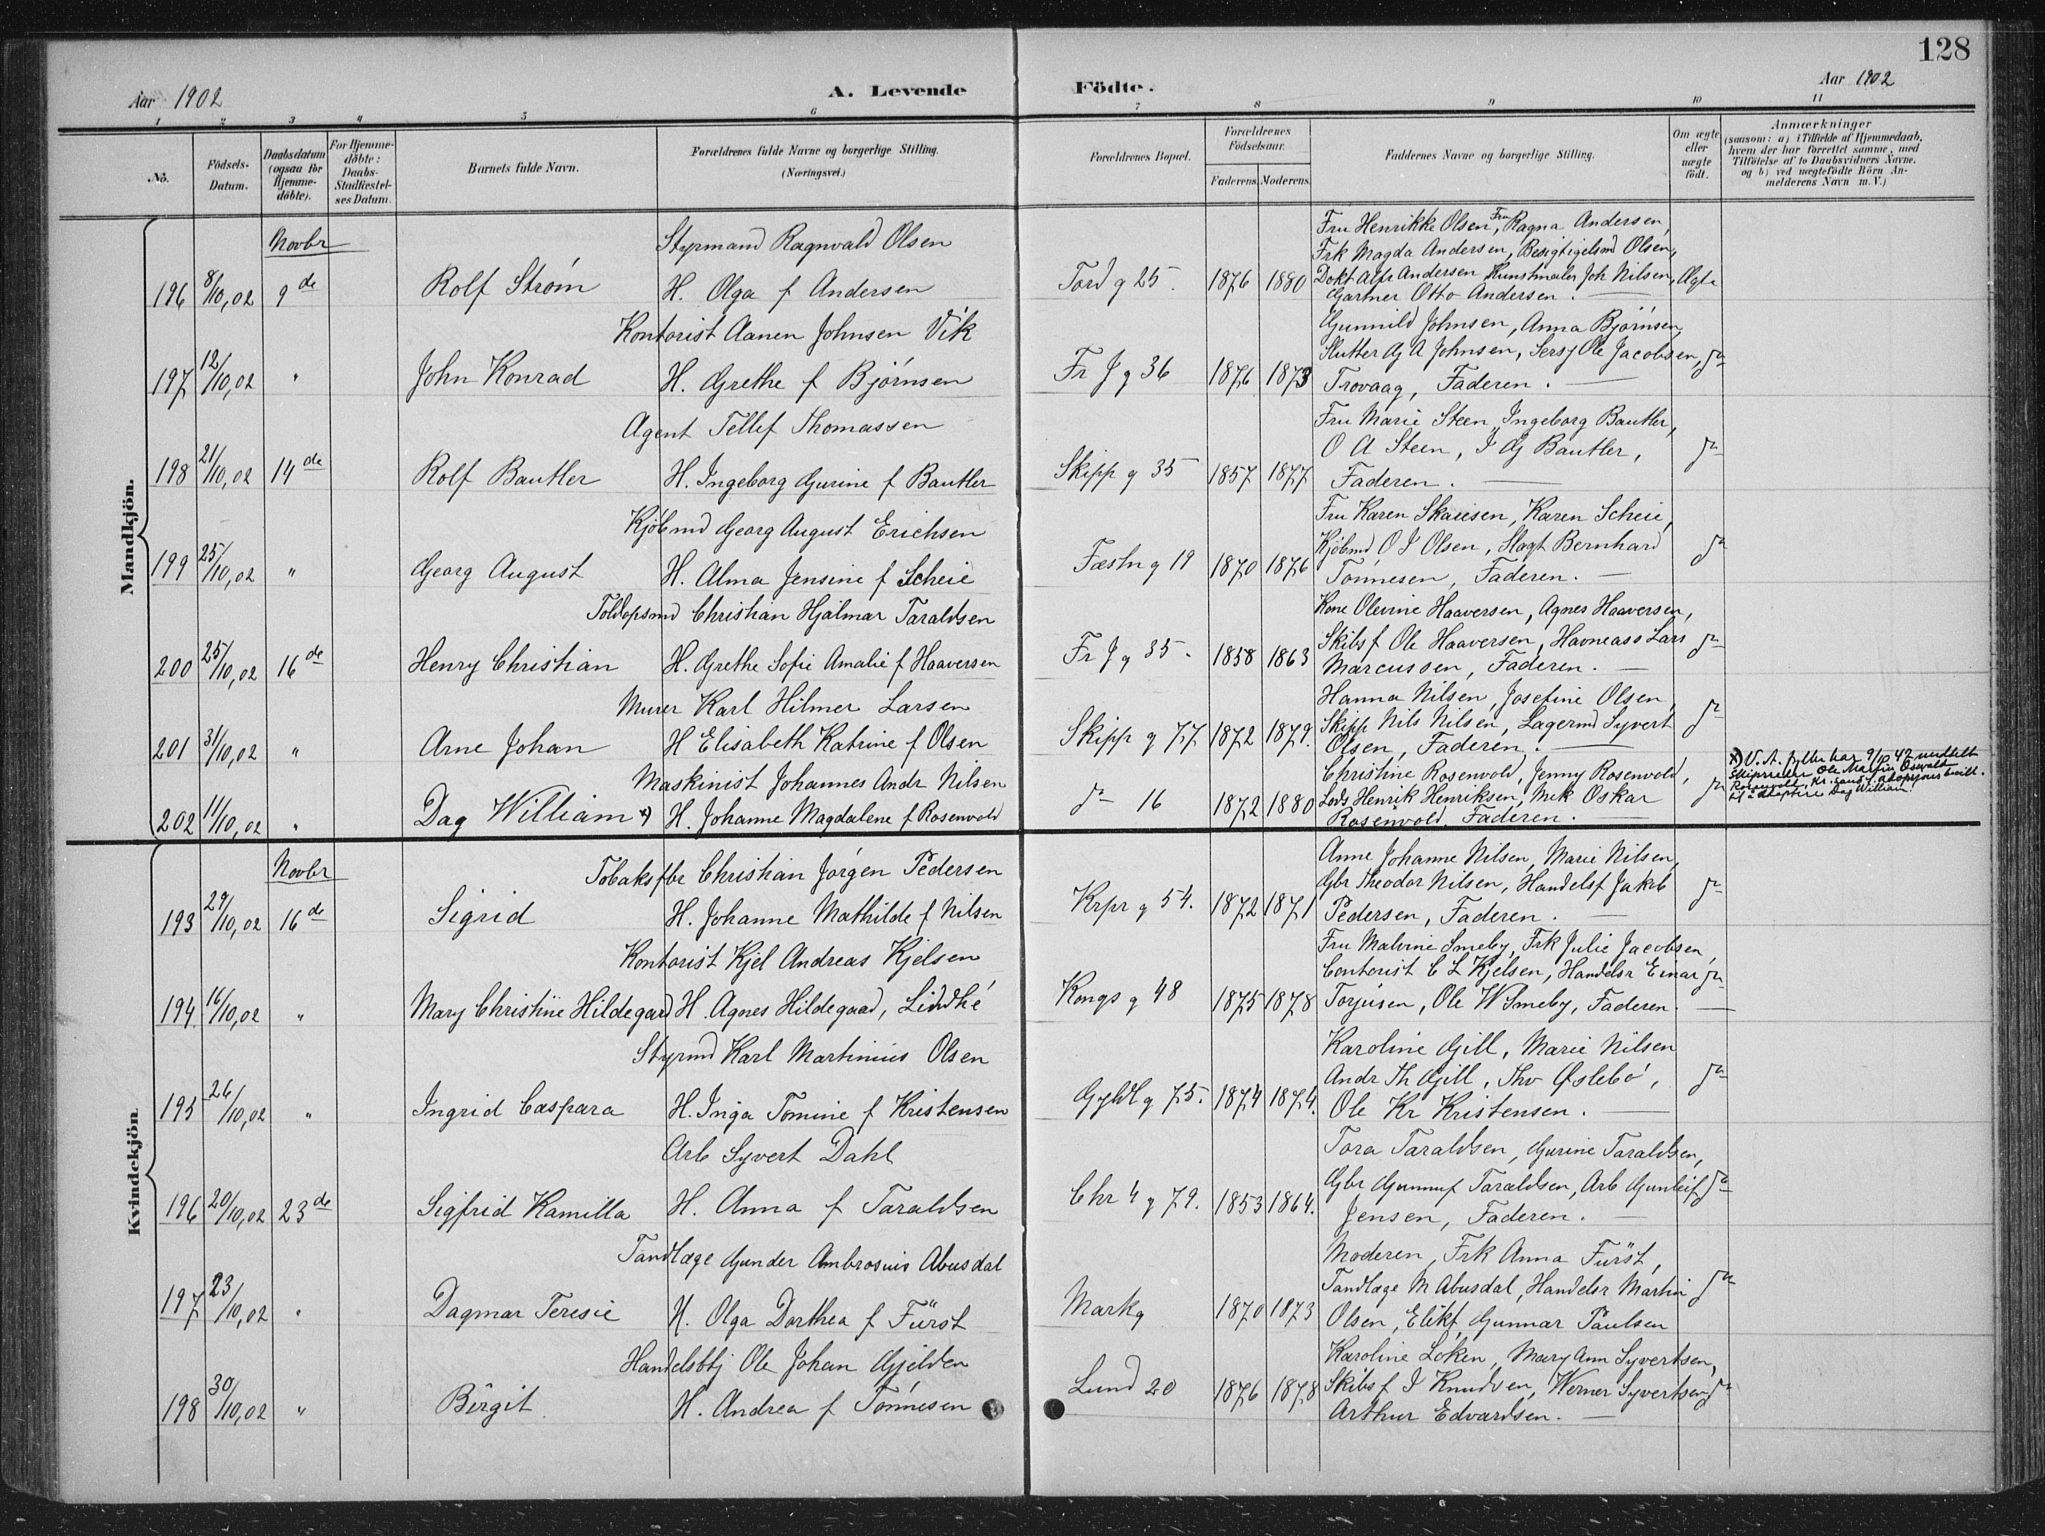 128
Aar 1902
A. Levende
Födte.
Aar 1902
1 2 3 4 5 6 7 8 9 10 11
No.
Födsels-Datum.
Daabsdatum (ogsaa for Hjemmedöbte).
For Hjemmedöbte: Daabs-Stadfæstelses Datum.
Barnets fulde Navn.
Forældrenes fulde Navne og borgerlige Stilling.
(Næringsvei.)
Forældrenes Bopæl.
Forældrenes Födselsaar.
Faderens. Moderens.
Faddernes Navne og borgerlige Stilling.
Om ægte eller uægte födt.
Anmærkninger
(saasom: a) i Tilfælde af Hjemmedaab, hvem der har forrettet samme, med Tilföielse af to Daabsvidners Navne, og b) ved uægtefödte Börn Anmelderens Navn m. V.)
Mandkjön.
Novbr
Styrmand Ragnvald Olsen
Fru Henrikke Olsen, Fru Ragna Andersen,
Frk Magda Andersen, Besigtigelsmd Olsen,
196 8/10,02 9de Rolf Strøm H. Olga f Andersen Tord g 25. 1876 1880 Dokt Alfr Andersen Kunstmaler Joh Nilsen, Ægte
Gartner Otto Andersen.
Kontorist Aanen Johnsen Vik
Gunnild Johnsen, Anna Bjørnsen,
Slutter Gj A Johnsen, Sersj Ole Jacobsen, do
197 12/10,02 " John Konrad H. Grethe f Bjørnsen Fr J g 36 1876 1873 Trovaag, Faderen.
Agent Tellef Thomassen
Fru Marie Steen, Ingeborg Bautler,
O A Steen, I Gj Bautler, do
198 21/10,02 14de Rolf Bautler H. Ingeborg Gurine f Bautler Skipp g 35 1857 1877 Faderen.
Kjøbmd Georg August Erichsen
Fru Karen Skaiesen, Karen Scheie,
Kjøbmd O I Olsen, Slagt Bernhard do
199 25/10,02 " Georg August H. Alma Jensine f Scheie Fæstn g 19 1870 1876 Tønnesen, Faderen.
Toldopsmd Christian Hjalmar Taraldsen
Kone Olevine Haaversen, Agnes Haaversen,
Skibsf Ole Haaversen, Havneass Lars do
200 25/10,02 16de Henry Christian H. Grethe Sofie Amalie f Haaversen Fr J g 35. 1858 1863 Marcussen, Faderen.
Murer Karl Hilmer Larsen
Hanna Nilsen, Josefine Olsen,
Skipp Nils Nilsen, Lagermd Syvert do
201 31/10,02 " Arne Johan H Elisabeth Katrine f Olsen Skipp g 77 1872 1879. Olsen, Faderen.
Maskinist Johannes Andr Nilsen
Christine Rosenvold, Jenny Rosenvold,
202 11/10,02 " Dag William x) H. Johanne Magdalene f Rosenvold do 16 1872 1880 Lods Henrik Henriksen, Mek Oskar do
Rosenvold, Faderen.
x) V. A. fylke har 9/10 42 meddelt
skipsreder Ole Martin Oswald
Rosenvold, Kr.sand S. adopsjonsbevill.
til å adoptere Dag William.
Kvindekjön.
Novbr
Tobaksfbr Christian Jørgen Pedersen
Anne Johanne Nilsen, Marie Nilsen,
Gbr Theodor Nilsen, Handelsf Jakob do
193 29/10,02 16de Sigrid H. Johanne Mathilde f Nilsen Krpr g 54. 1872 1871 Pedersen, Faderen.
Kontorist Kjel Andreas Kjelsen
Fru Malvine Smeby, Frk Julie Jacobsen,
Contorist C L Kjelsen, Handelsr Einar do
194 16/10,02 " Mary Christine Hildegard H. Agnes Hildegaad, Lindke Kongs g 48 1875 1878 Torjusen, Ole W Smeby, Faderen.
Styrmd Karl Martinius Olsen
Karoline Gill, Marie Nilsen
Andr Th Gill, Thv Øslebø, do
195 26/10,02 " Ingrid Caspara H. Inga Tomine f Kristensen Gyldl g 75. 1874 1874. Ole Kr Kristensen.
Arb Syvert Dahl
Tora Taraldsen, Gurine Taraldsen,
Gbr Gunnuf Taraldsen, Arb Gunleif do
196 20/10,02 23de Sigfrid Kamilla H. Anna f Taraldsen Chr 4 g 79. 1853 1864. Jensen, Faderen.
Tandlæge Gunder Ambrosius Abusdal
Moderen, Frk Anna Fürst,
Tandlæge M Abusdal, Handelsr Martin do
197 23/10,02 " Dagmar Teresie H. Olga Dorthea f Fürst Markg 1870 1873 Olsen, Elikf Gunnar Paulsen
Handelsbtj Ole Johan Gjelden
Karoline Løken, Mary Ann Syvertsen,
Skibsf I Knudsen, Werner Syvertsen, do
198 30/10,02 " Birgit H. Andrea f Tønnesen Lund 20 1876 1878 Arthur Edvardsen.